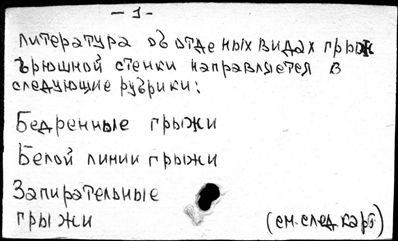 - 1 -
литература об отде ных видах грыж
брюшной стенки направляется в
следующие рубрики:
Бедренные грыжи
Белой линии грыжи
Запирательные
грыжи (см. след. карт)